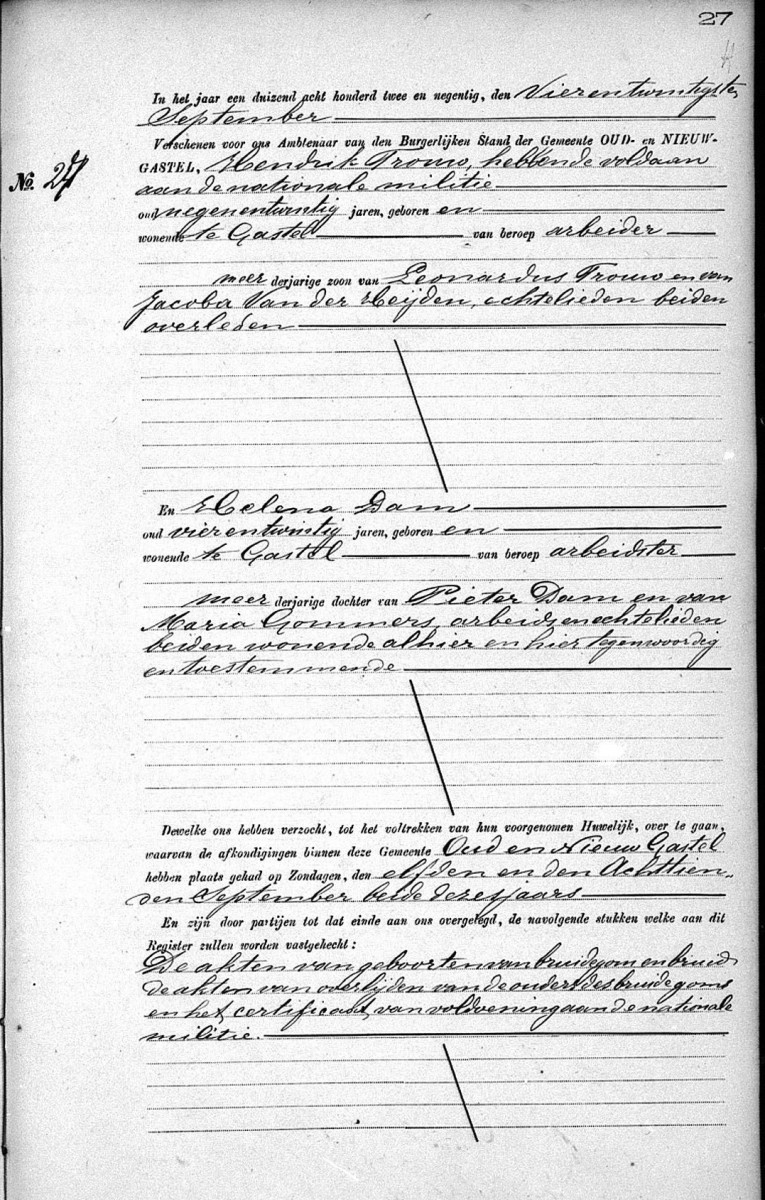 27
In het jaar een duizend acht honderd twee en negentig, den Vierentwintigsten
September
Verschenen voor ons Ambtenaar van den Burgerlijken Stand der Gemeente OUD- en NIEUW-
GASTEL, Hendrik Trouw, hebbende voldaan
No. 27
aan de nationale militie
oud negenentwintig jaren, geboren en
wonende te Gastel van beroep arbeider
meerderjarige zoon van Leonardus Trouw en van
Jacoba Van der Heijden, echtelieden beiden
overleden
En Helena Dam
oud vierentwintig jaren, geboren en
wonende te Gastel van beroep arbeidster
meerderjarige dochter van Pieter Dam en van
Maria Gommers, arbeidsenechtelieden
beiden wonende alhier en hier tegenwoordig
en toestemmende
Dewelke ons hebben verzocht, tot het voltrekken van hun voorgenomen Huwelijk, over te gaan,
waarvan de afkondigingen binnen deze Gemeente Oud en Nieuw Gastel
hebben plaats gehad op Zondagen, den elfden en den Achttien-
den September beide dezes jaars
En zijn door partijen tot dat einde aan ons overgelegd, de navolgende stukken welke aan dit
Register zullen worden vastgehecht:
De akten van geboorten van bruidegom en bruid
de akten van overlijden van de ouders des bruidegoms
en het certificaat van voldoening aan de nationale
militie.